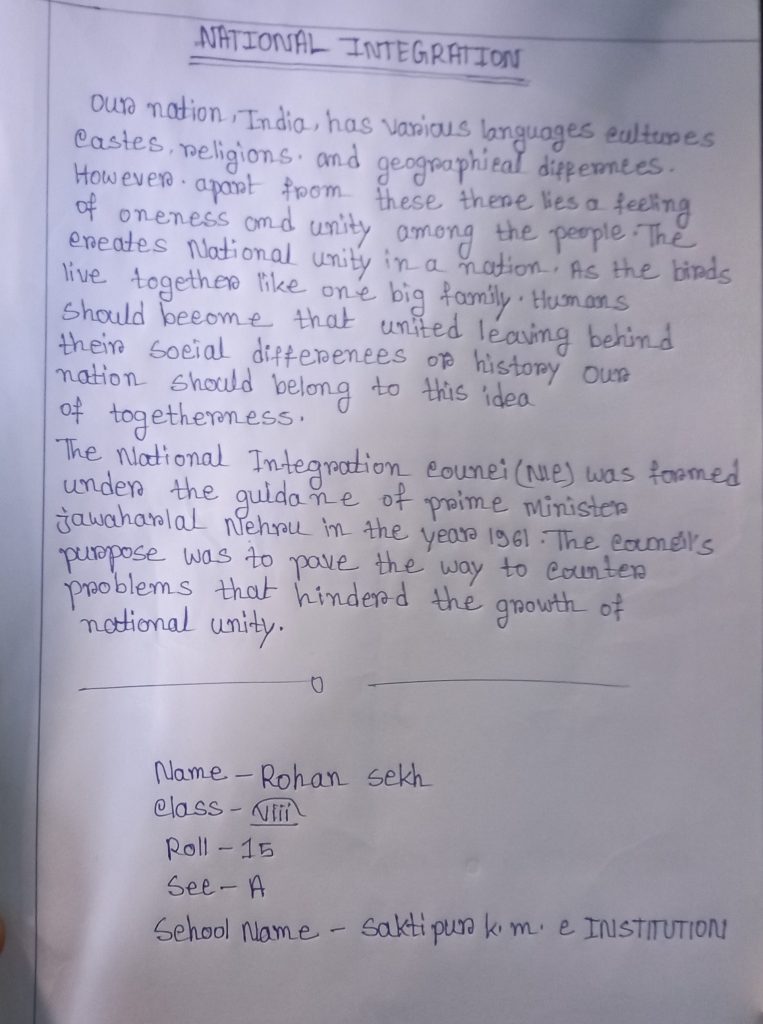 NATIONAL INTEGRATION
Our nation, India, has various languages cultures
Castes, religions. and geographical differnces.
However. apart from these there lies a feeling
of oneness and unity among the people. The
creates National unity in a nation. As the birds
live together like one big family. Humans
should become that united leaving behind
their social differences or history our
nation should belong to this idea
of togetherness.
The National Integration counci (NIC) was formed
under the guidane of prime Minister
jawaharlal Nehru in the year 1961. The council's
purpose was to pave the way to counter
problems that hinderd the growth of
national unity.
Name - Rohan sekh
Class - Viii
Roll - 15
Sec - A
School Name - Saktipur k. m. c INSTITUTION